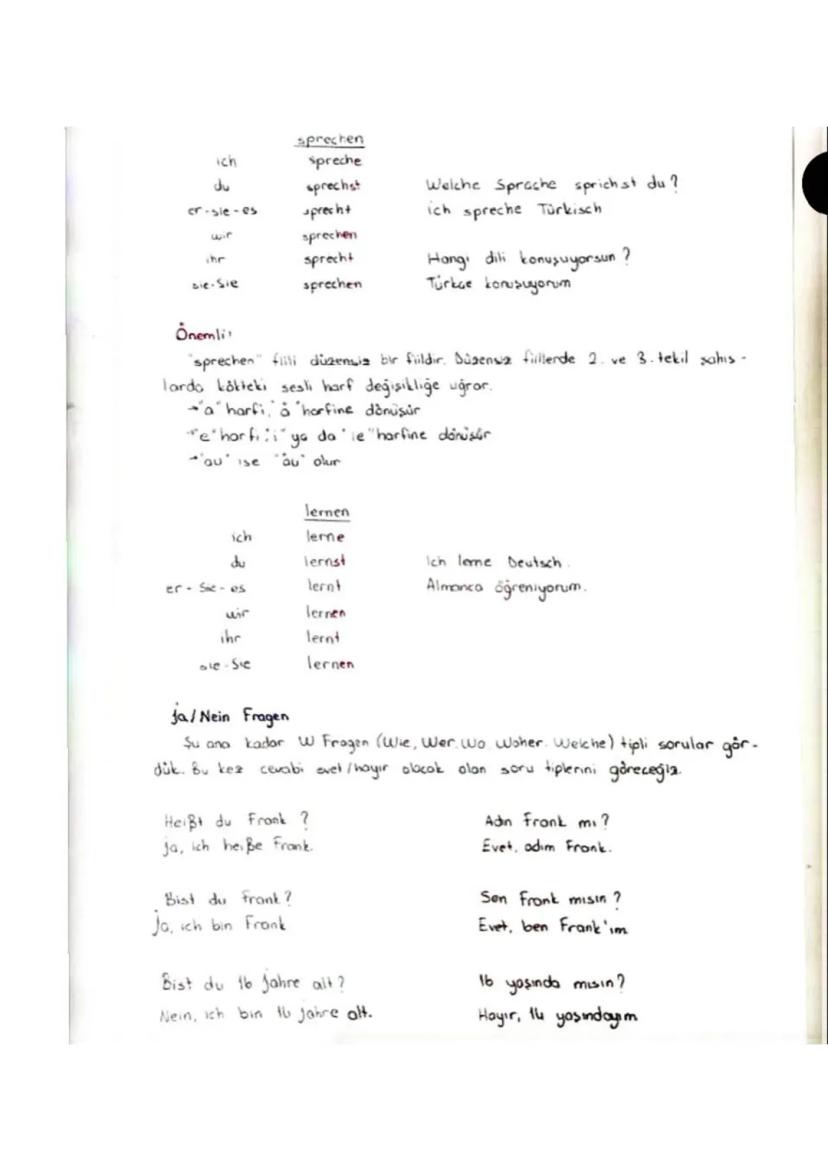 sprechen
ich spreche
du sprechst Welche Sprache sprichst du?
er-sie-es sprecht ich spreche Türkisch
wir sprechen
ihr sprecht Hangi dili konuşuyorsun?
sie-Sie sprechen Türkçe konuşuyorum
Önemli:
"sprechen" fiili düzensiz bir fiildir. Düzensiz fiillerde 2. ve 3. tekil şahıs-
larda kökteki sesli harf değişikliğe uğrar.
→"a" harfi, "ä" harfine dönüşür
→"e" harfi "i" ya da "ie" harfine dönüşür
→"au" ise "äu" olur
lernen
ich lerne
du lernst Ich lerne Deutsch.
er-Sie-es lernt Almanca öğreniyorum.
wir lernen
ihr lernt
sie-Sie lernen
Ja/Nein Fragen
Şu ana kadar W Fragen (Wie, Wer, Wo, Woher, Welche) tipli sorular gör-
dük. Bu kez cevabi evet/hayır olacak olan soru tiplerini göreceğiz.
Heißt du Frank? Adın Frank mı?
Ja, ich heiße Frank. Evet, adım Frank.
Bist du Frank? Sen Frank mısın?
Ja, ich bin Frank Evet, ben Frank'ım
Bist du 16 Jahre alt? 16 yaşında mısın?
Nein, ich bin Jahre alt. Hayır, 14 yaşındayım